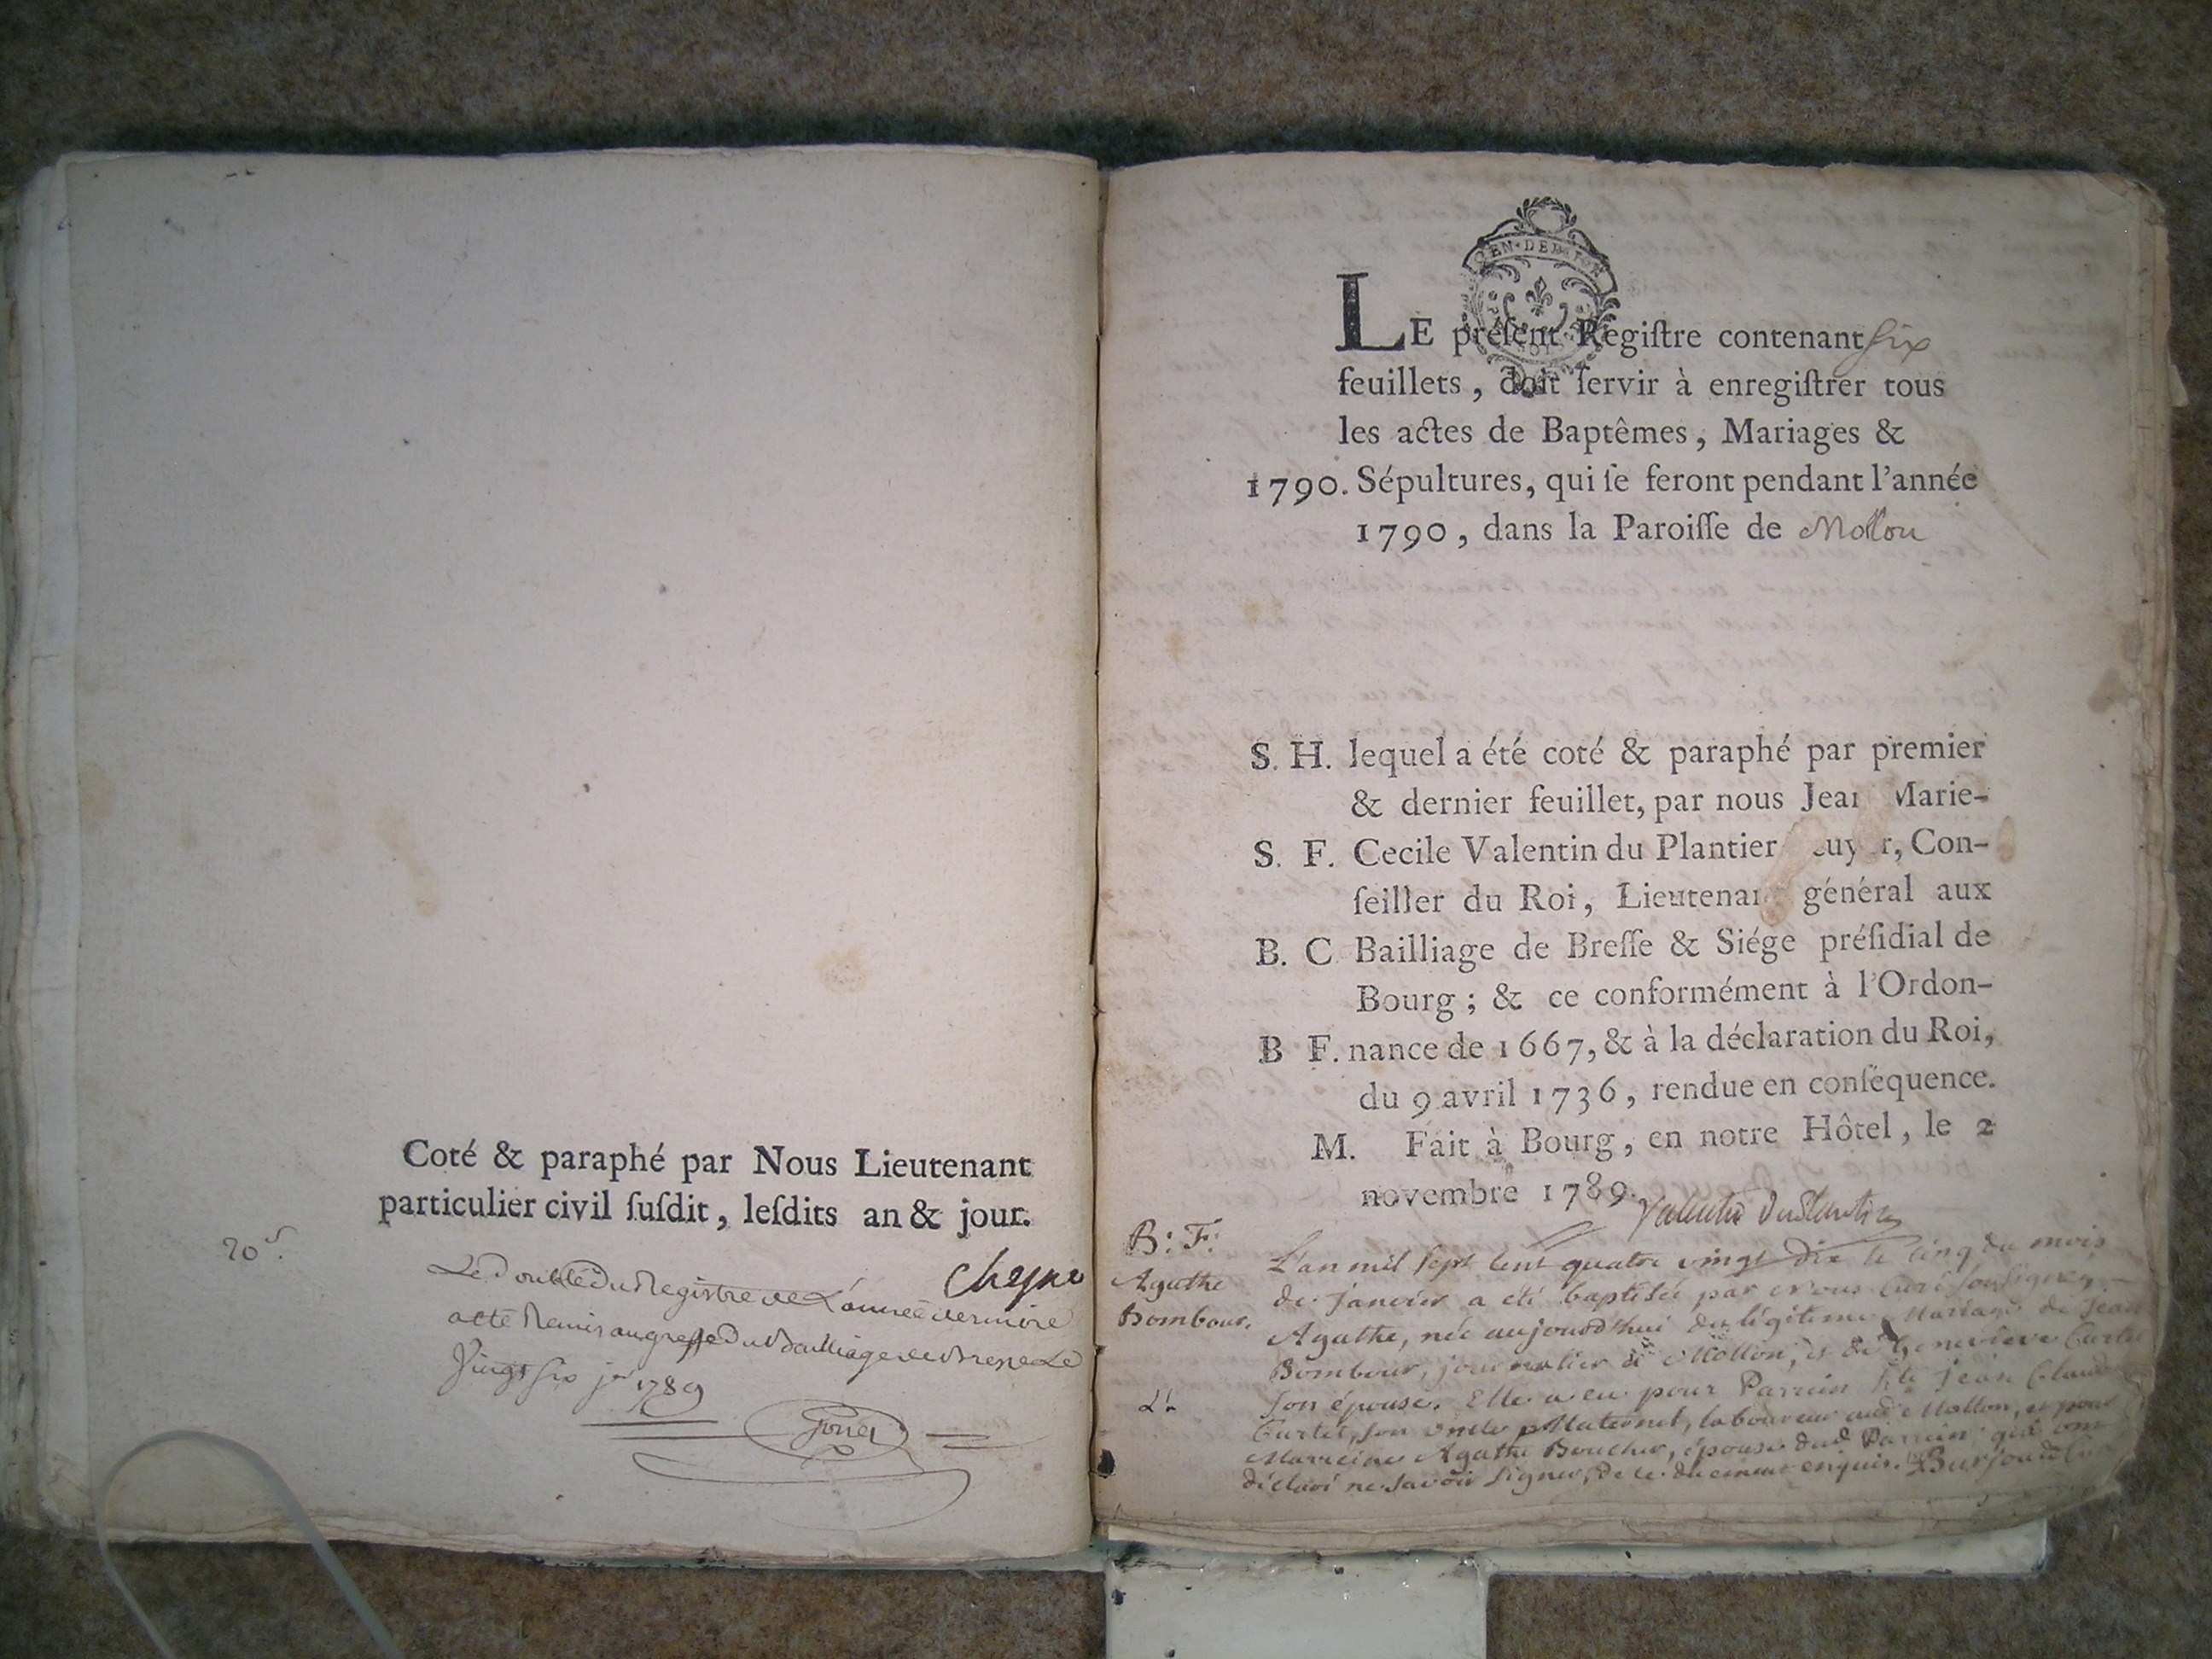 Coté & paraphé par Nous Lieutenant
particulier civil ſuſdit, leſdits an & jour.
20ˢ.
Cheyne
Le Double Du Registre de L'année derniere
a été Remis au greffe Du Bailliage de Bresse Le
Vingt six jᵉʳ 1789
GEN·DE
LE préſent Regiſtre contenant six
feuillets, doit ſervir à enregiſtrer tous
les actes de Baptêmes, Mariages &
1790. Sépultures, qui ſe feront pendant l'année
1790, dans la Paroiſſe de Mollon
S. H. lequel a été coté & paraphé par premier
& dernier feuillet, par nous Jean Marie-
S. F. Cecile Valentin du Plantier Ecuyer, Con-
ſeiller du Roi, Lieutenant général aux
B. C Bailliage de Breſſe & Siége préſidial de
Bourg; & ce conformément à l'Ordon-
B F. nance de 1667, & à la déclaration du Roi,
du 9 avril 1736, rendue en conſéquence.
M. Fait à Bourg, en notre Hôtel, le 2
novembre 1789.
Valentin DuPlantier
B: F:
Agathe
Bombour.
L'an mil sept cent quatre vingt dix le cinq du mois
de janvier a été baptisée par Nous Curé soussigné
Agathe, née aujourd'hui du légitime Mariage de Jean
Bombour, journalier à Mollon, et de Genevieve Curtet
son épouse. Elle a eu pour Parrein Jean Claude
Curtet, son oncle Maternel, laboureur aud Mollon, et pour
Marreine Agathe Boucher, épouse dud Parrein, qui ont
déclaré ne savoir signer, de ce duement enquis.